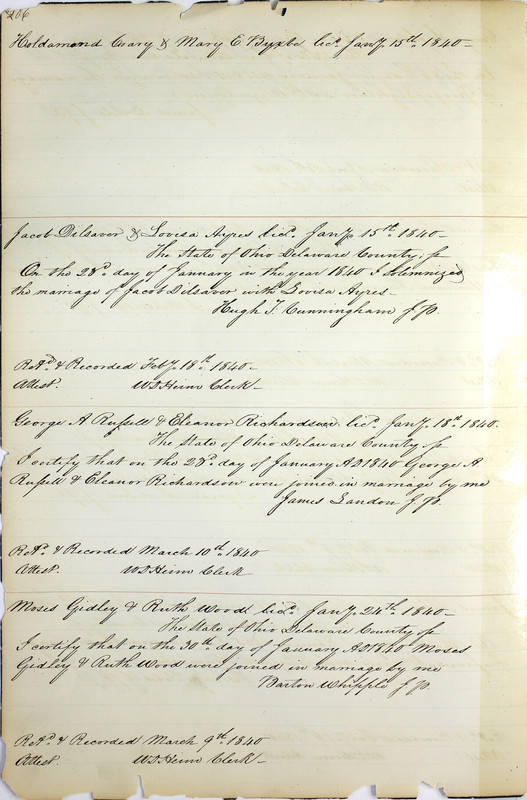 206
Holdamond Crary & Mary E Byxbe lics. Jany. 15th. 1840-
Jacob Dilsaver & Lovisa Ayres lics. Jany. 15th. 1840-
The State of Ohio Delaware County, ss
On the 28th. day of January in the year 1840 I Solemnized
the marriage of Jacob Dilsaver with Lovisa Ayres-
Hugh T. Cunningham J.P.
Retd. & Recorded Feby. 18th. 1840-
Attest. W D Heim Clerk-
George A Russell & Eleanor Richardson lics. Jany. 18th. 1840.
The State of Ohio Delaware County ss
I certify that on the 28th. day of January AD 1840 George A
Russell & Eleanor Richardson were joined in marriage by me
James Landon J.P.
Retd. & Recorded March 10th. 1840
Attest. W D Heim Clerk
Moses Gidley & Ruth Wood lics. Jany. 24th. 1840-
The State of Ohio Delaware County ss
I certify that on the 30th. day of January AD 1840 Moses
Gidley & Ruth Wood were joined in marriage by me
Barton Whipple J.P.
Retd. & Recorded March 9th. 1840
Attest. W D Heim Clerk-